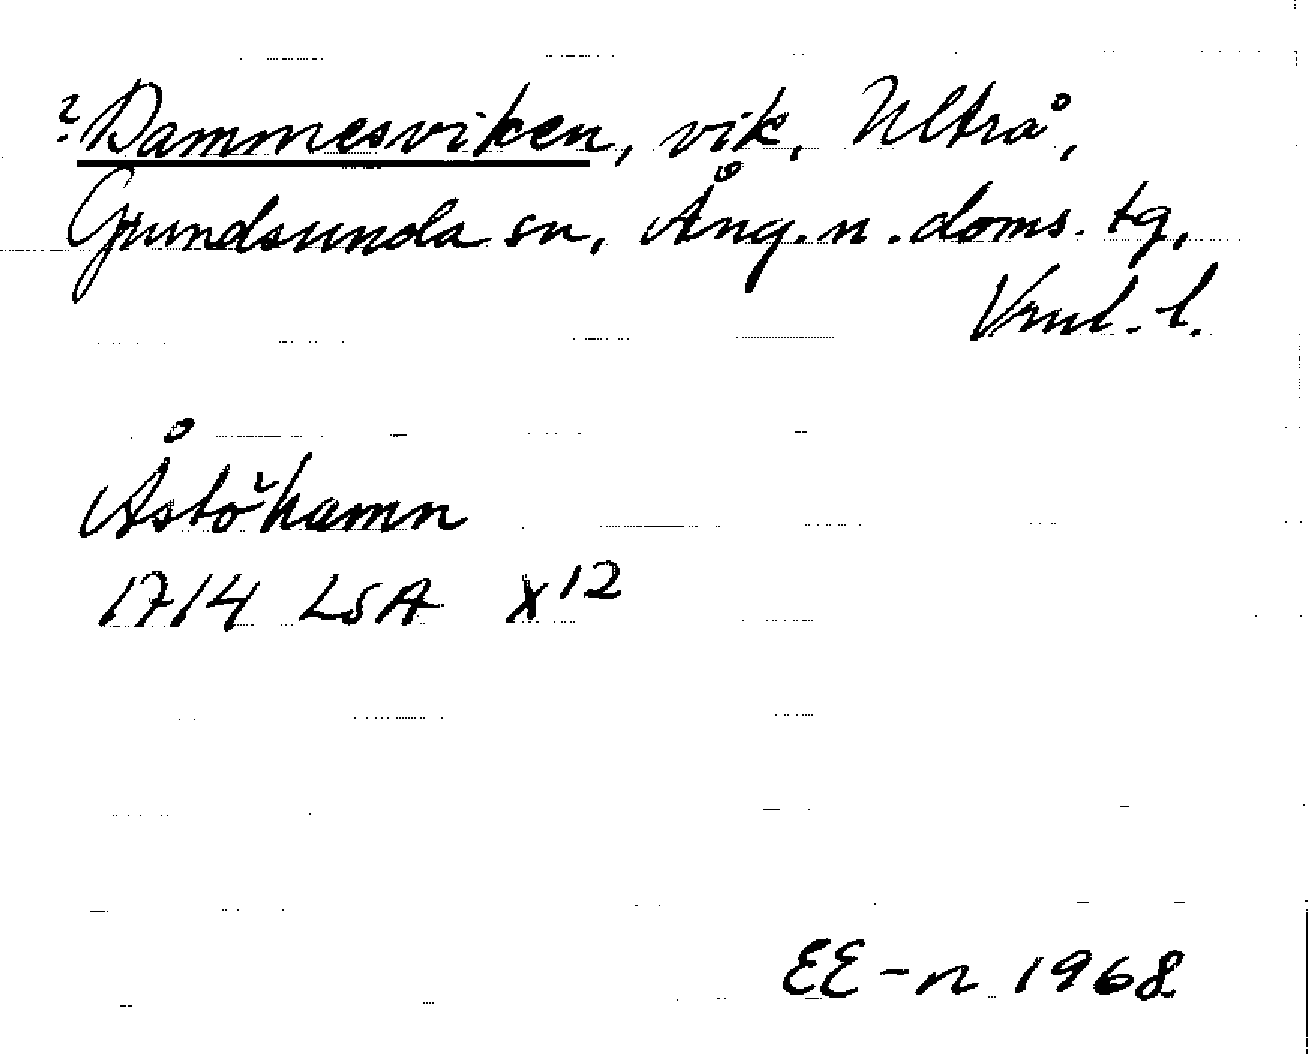 ? Dammesviken, vik, Ultrå,
Grundsunda sn, Ång. n. doms. tg,
Vnl. l.
Åstöhamn
1714 LSA X12
EE-n 1968